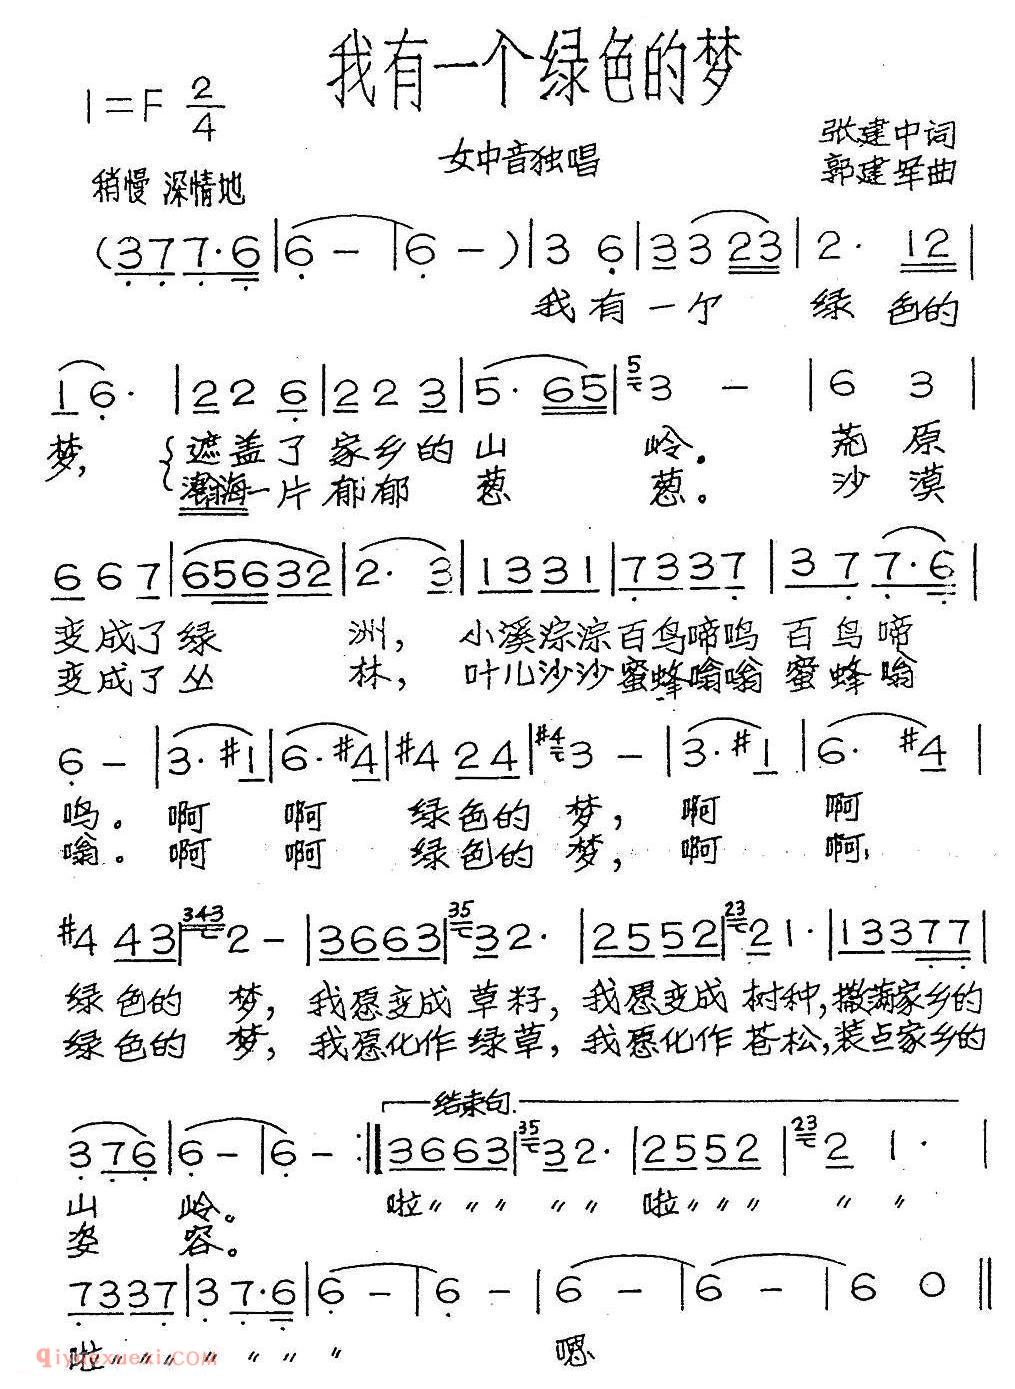 我有一个绿色的梦
1=F 2/4
女中音独唱
张建中词
郭建军曲
稍慢 深情地
(3 7 7·6 | 6 - | 6 -) | 3 6 | 3 3 23 | 2· 12 |
我有一个 绿色的
1 6· | 2 2 6 | 2 2 3 | 5· 65 | 5 3 - | 6 3 |
梦, 遮盖了家乡的山 岭。 荒原
瀚海一片郁郁 葱 葱。 沙漠
6 6 7 | 65632 | 2· 3 | 1331 | 7337 | 3 7 7·6 |
变成了绿 洲, 小溪淙淙百鸟啼鸣 百鸟啼
变成了丛 林, 叶儿沙沙蜜蜂嗡嗡 蜜蜂嗡
6 - | 3· #1 | 6· #4 | #4 24 | #4 3 - | 3· #1 | 6· #4 |
鸣。 啊 啊 绿色的 梦, 啊 啊
嗡。 啊 啊 绿色的 梦, 啊 啊,
#4 43 | 343 2 - | 3663 | 35 32· | 2552 | 23 21· | 13377 |
绿色的 梦, 我愿变成草籽, 我愿变成树种, 撒满家乡的
绿色的 梦, 我愿化作绿草, 我愿化作苍松, 装点家乡的
结束句
3 76 | 6 - | 6 - :‖ 3663 | 35 32· | 2552 | 23 2 1· |
山 岭。 啦〃〃〃 〃〃 啦〃〃〃 〃 〃
姿 容。
7337 | 3 7·6 | 6 - | 6 - | 6 - | 6 - | 6 0 ‖
啦〃〃〃 〃〃〃 〃 嗯
qiyuexuexi.COM